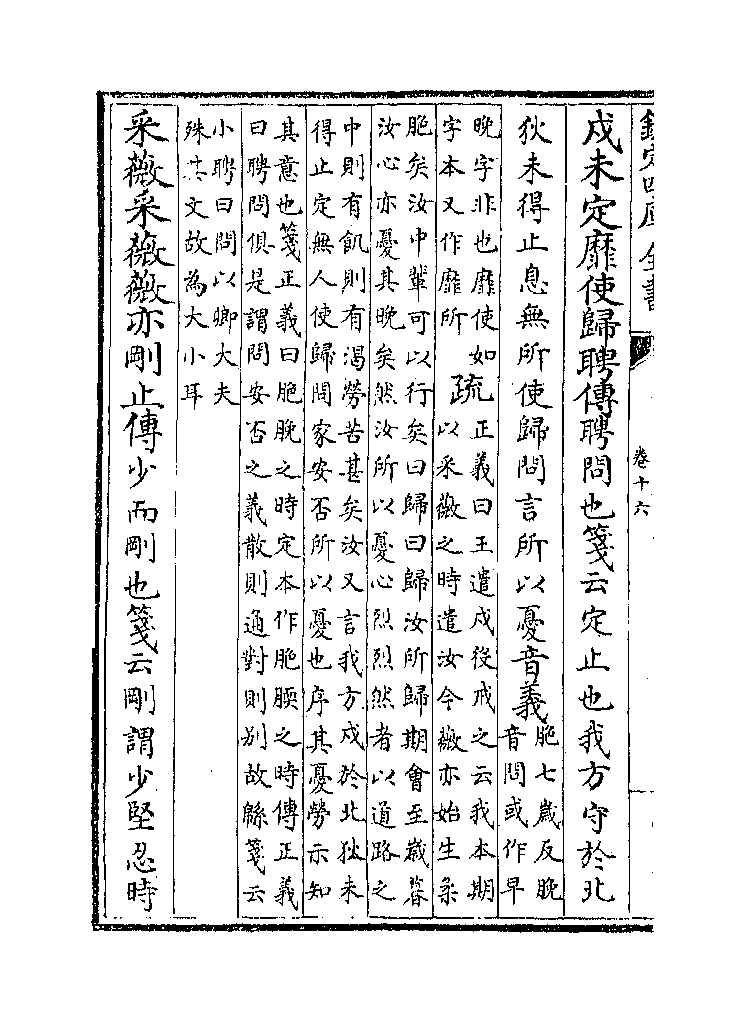 欽定四庫全書 卷十六
戍未定靡使歸聘傳聘問也箋云定止也我方守於北
狄未得止息無所使歸問言所以憂音義
脃七歲反脕
音問或作早
晚字非也靡使如
字本又作靡所
疏
正義曰王遣戍役戒之云我本期
以采薇之時遣汝今薇亦始生柔
脃矣汝中輩可以行矣曰歸曰歸汝所歸期會至歲暮
汝心亦憂其晚矣然汝所以憂心烈烈然者以道路之
中則有飢則有渴勞苦甚矣汝又言我方戍於北狄未
得止定無人使歸問家安否所以憂也序其憂勞示知
其意也箋正義曰脃脕之時定本作脃腝之時傳正義
曰聘問俱是謂問安否之義散則通對則别故緜箋云
小聘曰問以卿大夫
殊其文故為大小耳
采薇采薇薇亦剛止傳少而剛也箋云剛謂少堅忍時